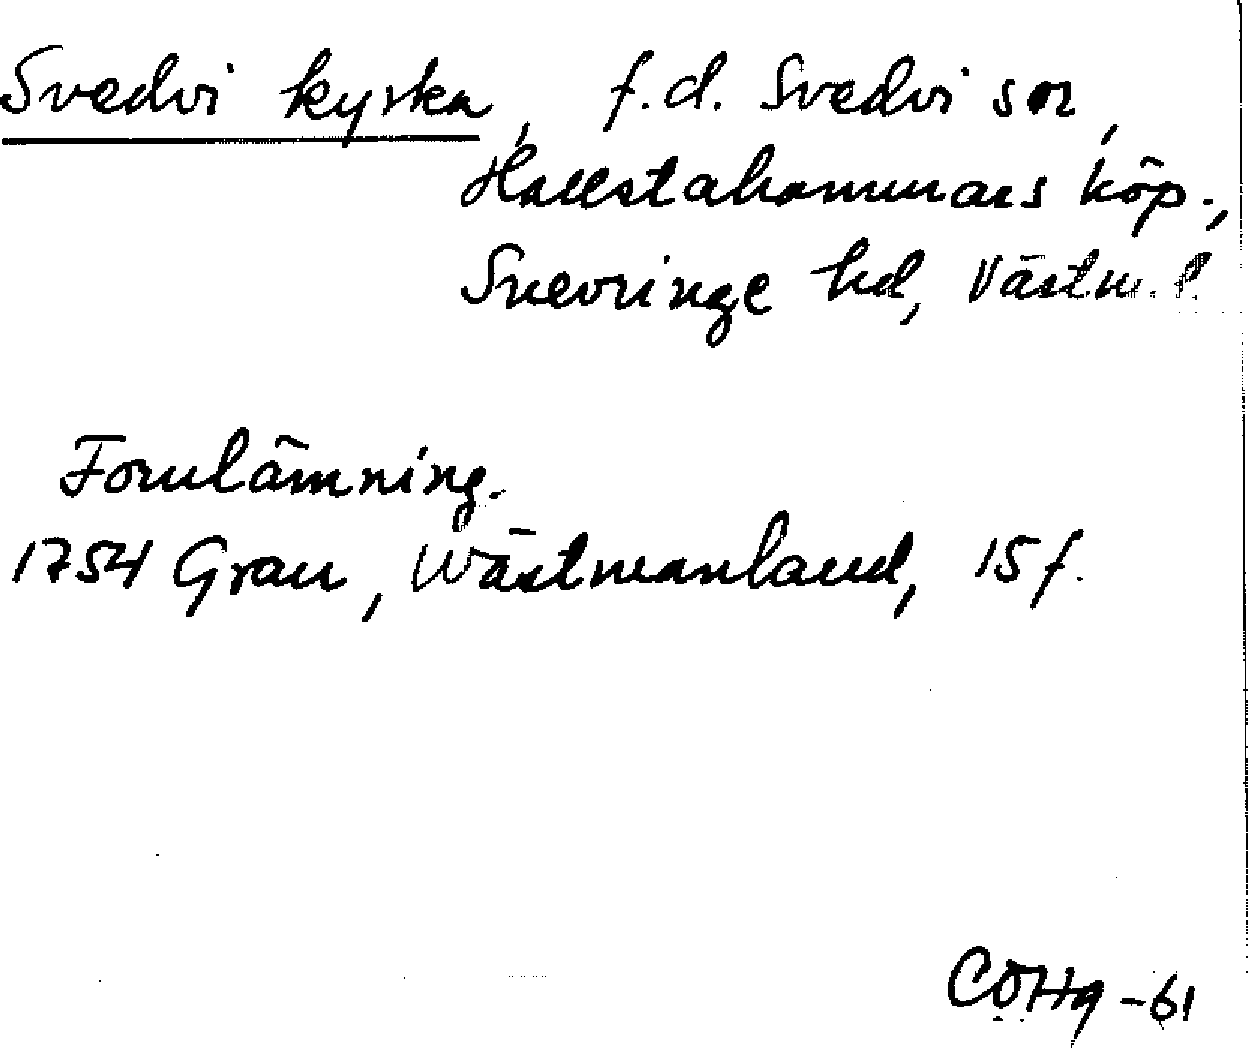 Svedvi kyrka, f.d. Svedvi sn,
Hallstahammars köp.,
Snevringe hd, Västm. l.
Fornlämning.
1754 Grau, Wästmanland, 15 f.
COHg -61